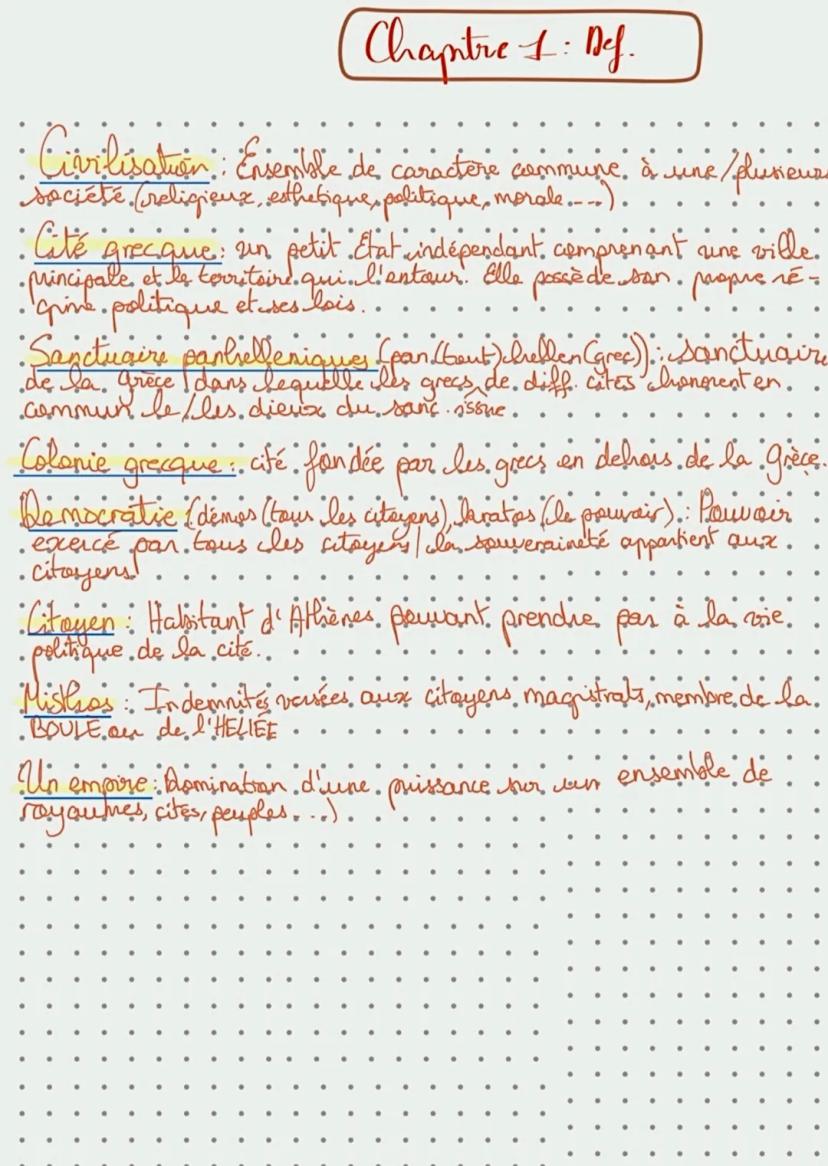 Chapitre 1 : Def.
Civilisation : Ensemble de caractère commune à une/plusieurs
société (religieux, esthetique, politique, morale ...)
Cité grecque : un petit État indépendant comprenant une ville
principale et le territoire qui l'entour. Elle possède son propre ré-
gime politique et ses lois.
Sanctuaire panhelleniques (pan (tout) hellen (grec)) : sanctuaire
de la grèce dans lequelle les grecs de diff. cités honorent en
commun le/les dieux du sanc.
Colonie grecque : cité fondée par les grecs en dehors de la Grèce.
Democratie (démos (tous les citoyens), kratos (le pouvoir) : Pouvoir
exercé par tous les citoyens / la souveraineté appartient aux
citoyens
Citoyen : Habitant d'Athènes pouvant prendre par à la vie
politique de la cité.
Misthos : Indemnités versées aux citoyens magistrats, membre de la
BOULÉ ou de l'HELIÉE
Un empire : Domination d'une puissance sur un ensemble de
royaumes, cités, peuples ...)